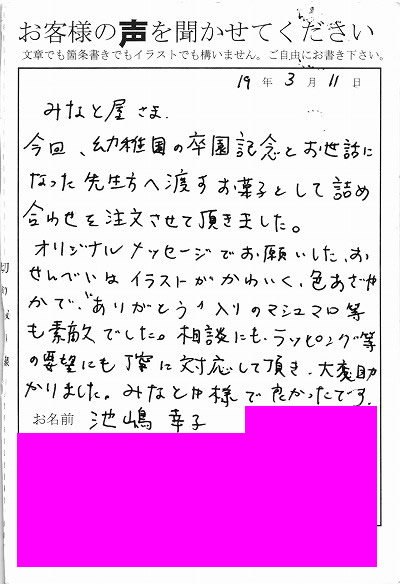 お客様の声を聞かせてください
文章でも箇条書きでもイラストでも構いません。ご自由にお書き下さい。
19年 3月 11日
みなと屋さま.
今回、幼稚園の卒園記念とお世話に
なった先生方へ渡すお菓子として詰め
合わせを注文させて頂きました。
オリジナルメッセージでお願いした、お
せんべいはイラストがかわいく、色あざや
かで、"ありがとう"入りのマシュマロ等
も素敵でした。相談にも、ラッピング等
の要望にも丁寧に対応して頂き、大変助
かりました。みなとや様で良かったです.
お名前 池嶋 幸子
切り取り線